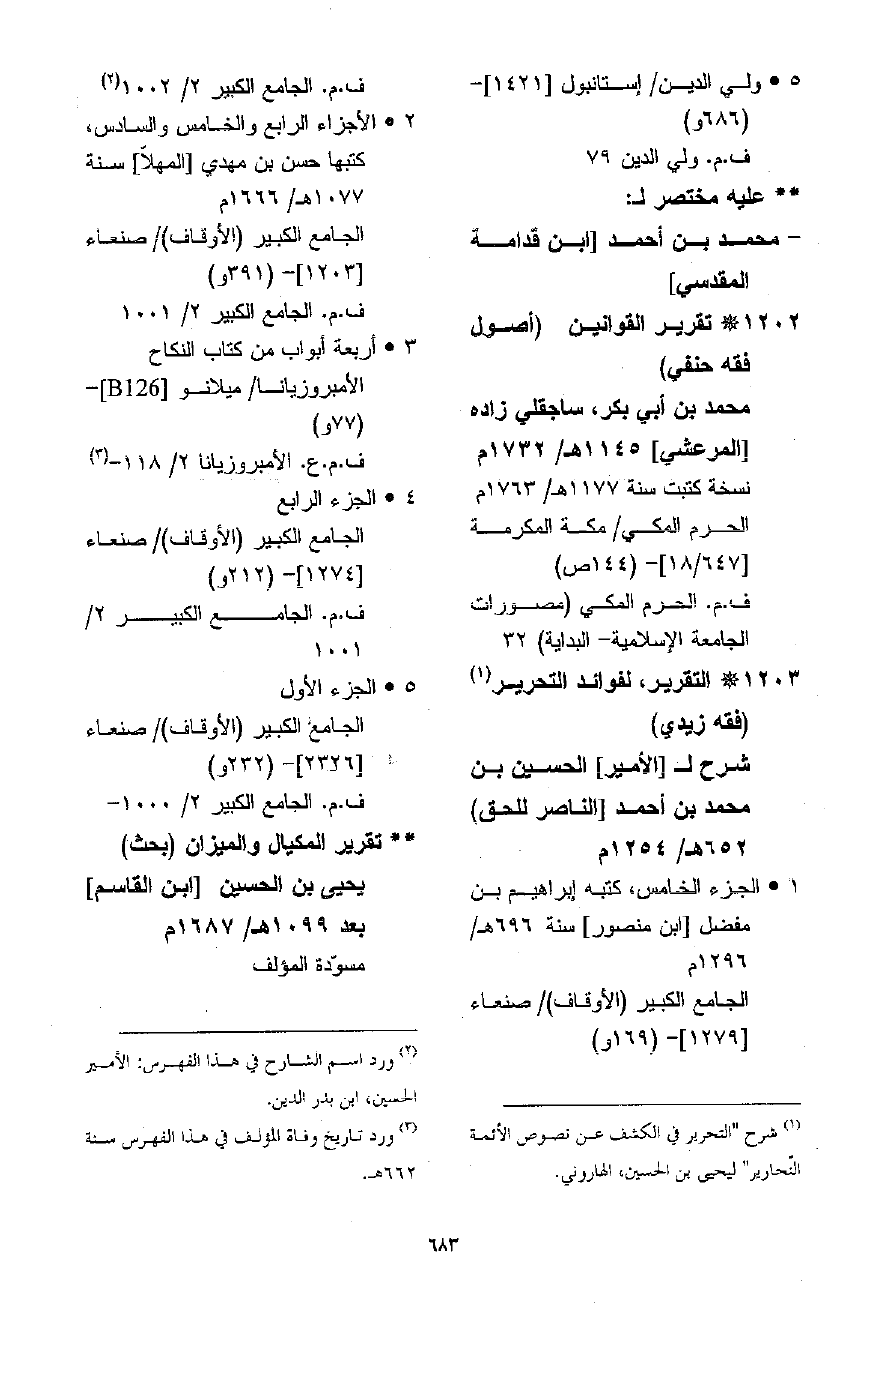 ٥ • ولي الدين/ إستانبول [١٤٢١]-
(٦٨٦و)
ف.م. ولي الدين ٧٩
** عليه مختصر لـ:
- محمد بن أحمد [ابن قدامة
المقدسي]
١٢٠٢* تقرير القوانين (أصول
فقه حنفي)
محمد بن أبي بكر، ساجقلي زاده
[المرعشي] ١١٤٥هـ/ ١٧٣٢م
نسخة كتبت سنة ١١٧٧هـ/ ١٧٦٣م
الحرم المكي/ مكة المكرمة
[١٨/٦٤٧]- (١٤٤ص)
ف.م. الحرم المكي (مصورات
الجامعة الإسلامية- البداية) ٣٢
١٢٠٣* التقرير، لفوائد التحرير(١)
(فقه زيدي)
شرح لـ [الأمير] الحسين بن
محمد بن أحمد [الناصر للحق)
٦٥٢هـ/ ١٢٥٤م
١ • الجزء الخامس، كتبه إبراهيم بن
مفضل [ابن منصور] سنة ٦٩٦هـ/
١٢٩٦م
الجامع الكبير (الأوقاف)/ صنعاء
[١٢٧٩]- (١٦٩و)
(١) شرح "التحرير في الكشف عن نصوص الأئمة
النّحارير" ليحيى بن الحسين، الهاروني.
ف.م. الجامع الكبير ٢/ ١٠٠٢(٢)
٢ • الأجزاء الرابع والخامس والسادس،
كتبها حسن بن مهدي [المهلاّ] سنة
١٠٧٧هـ/ ١٦٦٦م
الجامع الكبير (الأوقاف)/ صنعاء
[١٢٠٣]- (٣٩١و)
ف.م. الجامع الكبير ٢/ ١٠٠١
٣ • أربعة أبواب من كتاب النكاح
الأمبروزيانا/ ميلانو [B126]-
(٧٧و)
ف.م.ع. الأمبروزيانا ٢/ ١١٨-(٣)
٤ • الجزء الرابع
الجامع الكبير (الأوقاف)/ صنعاء
[١٢٧٤]- (٢١٢و)
ف.م. الجامع الكبير ٢/
١٠٠١
٥ • الجزء الأول
الجامع الكبير (الأوقاف)/ صنعاء
[٢٣٢٦]- (٢٣٢و)
ف.م. الجامع الكبير ٢/ ١٠٠٠-
** تقرير المكيال والميزان (بحث)
يحيى بن الحسين [ابن القاسم]
بعد ١٠٩٩هـ/ ١٦٨٧م
مسوّدة المؤلف
(٢) ورد اسم الشارح في هذا الفهرس: الأمير
الحسين، ابن بدر الدين.
(٣) ورد تاريخ وفاة المؤلف في هذا الفهرس سنة
٦٦٢هـ.
٦٨٣